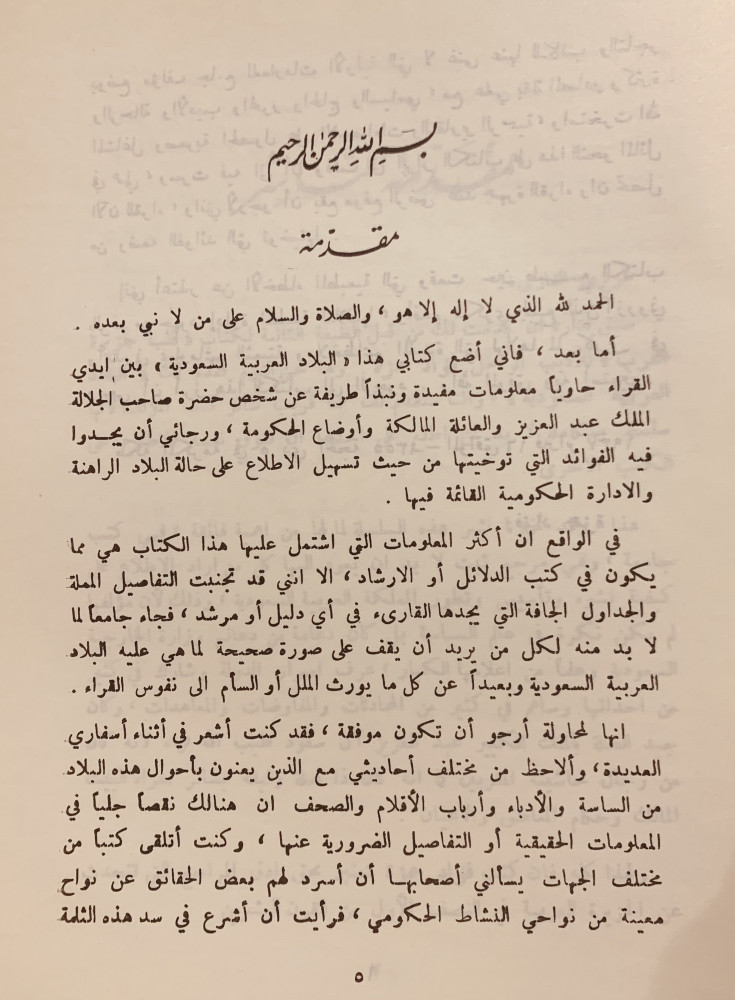 بسم الله الرحمن الرحيم
مقدمة
الحمد لله الذي لا إله إلا هو ، والصلاة والسلام على من لا نبي بعده .
أما بعد ، فاني أضع كتابي هذا « البلاد العربية السعودية » بين ايدي
القراء حاوياً معلومات مفيدة ونبذاً طريفة عن شخص حضرة صاحب الجلالة
الملك عبد العزيز والعائلة المالكة وأوضاع الحكومة ، ورجائي أن يجدوا
فيه الفوائد التي توخيتها من حيث تسهيل الاطلاع على حالة البلاد الراهنة
والادارة الحكومية القائمة فيها .
في الواقع ان أكثر المعلومات التي اشتمل عليها هذا الكتاب هي مما
يكون في كتب الدلائل أو الارشاد ، الا انني قد تجنبت التفاصيل المملة
والجداول الجافة التي يجدها القارىء في أي دليل أو مرشد ، فجاء جامعاً لما
لا بد منه لكل من يريد أن يقف على صورة صحيحة لما هي عليه البلاد
العربية السعودية وبعيداً عن كل ما يورث الملل أو السأم الى نفوس القراء .
انها لمحاولة أرجو أن تكون موفقة ، فقد كنت أشعر في أثناء أسفاري
العديدة ، وألاحظ من مختلف أحاديثي مع الذين يعنون بأحوال هذه البلاد
من الساسة والأدباء وأرباب الأقلام والصحف ان هنالك نقصاً جلياً في
المعلومات الحقيقية أو التفاصيل الضرورية عنها ، وكنت أتلقى كتباً من
مختلف الجهات يسألني أصحابها أن أسرد لهم بعض الحقائق عن نواح
معينة من نواحي النشاط الحكومي ، فرأيت أن أشرع في سد هذه الثلمة
٥